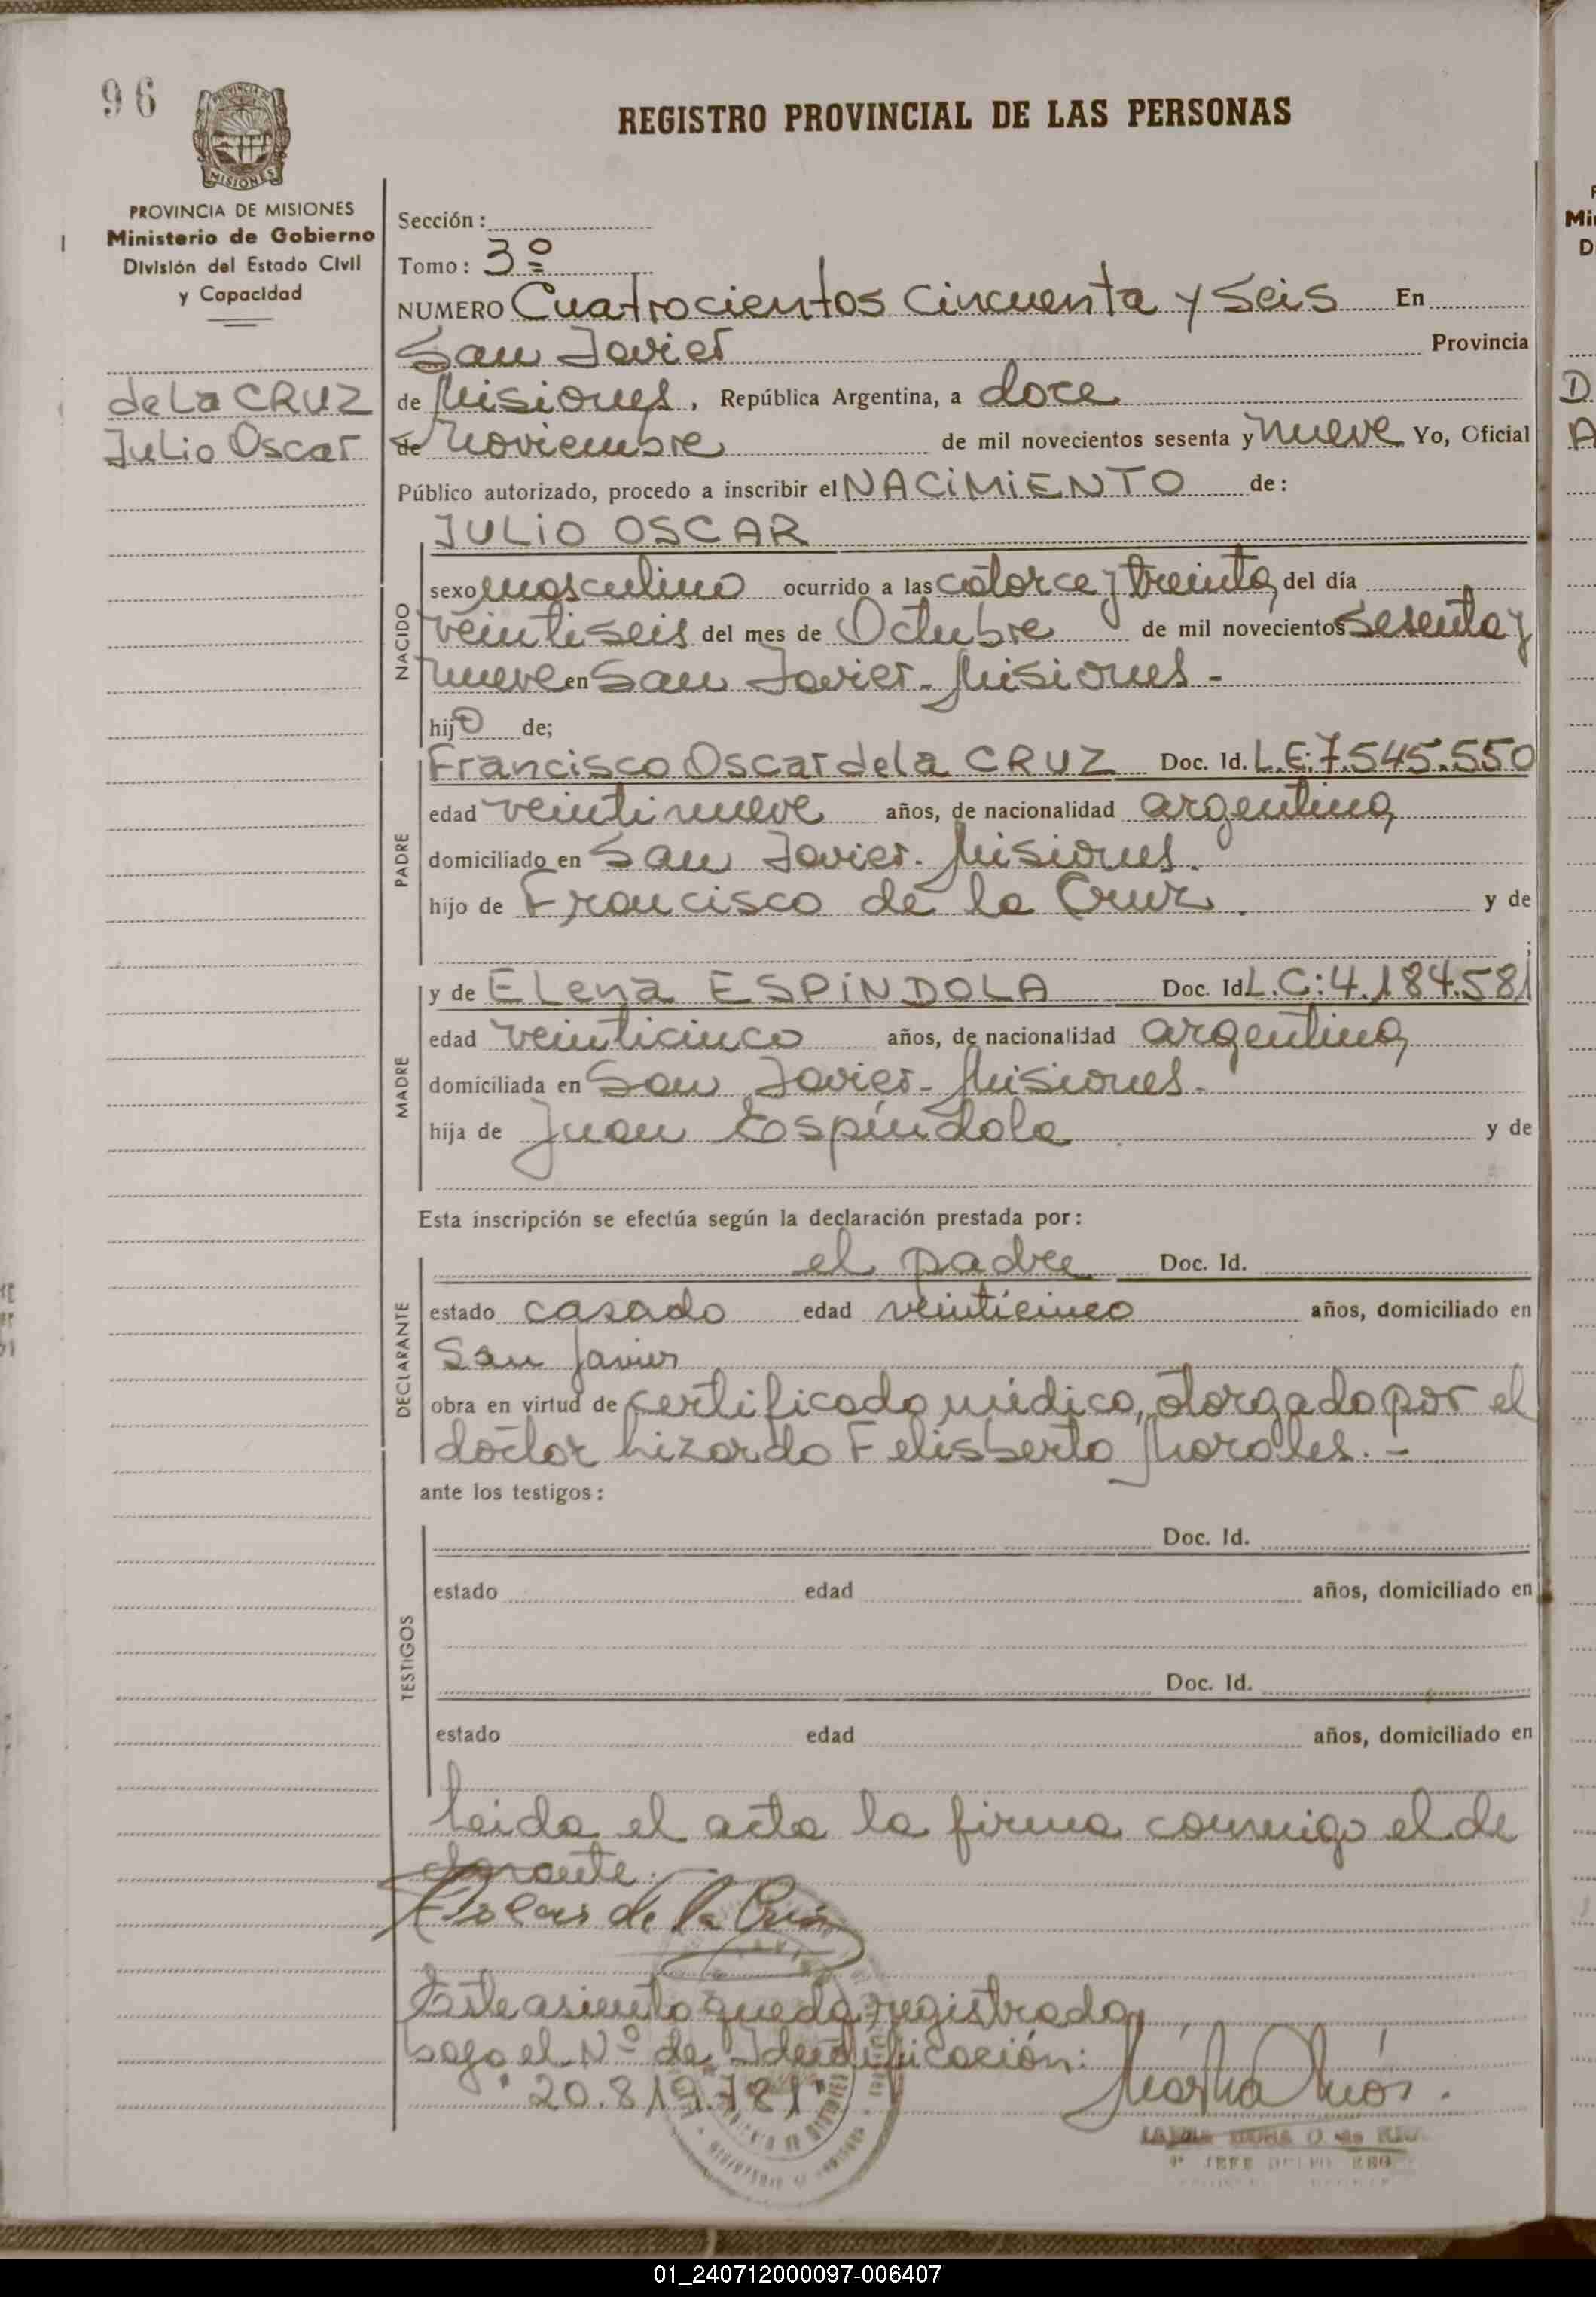 96
MISIONES
REGISTRO PROVINCIAL DE LAS PERSONAS
PROVINCIA DE MISIONES
Ministerio de Gobierno
División del Estado Civil
y Capacidad
de La CRUZ
Julio Oscar
Sección:
Tomo: 3º
NUMERO Cuatrocientos Cincuenta y Seis En
San Javier Provincia
de Misiones, República Argentina, a doce
de Noviembre de mil novecientos sesenta y nueve Yo, Oficial
Público autorizado, procedo a inscribir el NACIMIENTO de:
JULIO OSCAR
NACIDO
sexo masculino ocurrido a las catorce y treinta del día
veintiseis del mes de Octubre de mil novecientos sesenta y
nueve en San Javier - Misiones -
hijo de;
Francisco Oscar de la CRUZ Doc. Id. L.E: 7.545.550
PADRE
edad veintinueve años, de nacionalidad argentina
domiciliado en San Javier - Misiones.
hijo de Francisco de la Cruz. y de
;
y de Elena ESPINDOLA Doc. Id. L.C: 4.184.581
MADRE
edad veinticinco años, de nacionalidad argentina
domiciliada en San Javier - Misiones -
hija de Juan Espíndola y de
Esta inscripción se efectúa según la declaración prestada por:
DECLARANTE
el padre Doc. Id.
estado casado edad veinticinco años, domiciliado en
San Javier
obra en virtud de certificado médico, otorgado por el
doctor Lizardo Felisberto Morales. -
ante los testigos:
TESTIGOS
Doc. Id.
estado edad años, domiciliado en
Doc. Id.
estado edad años, domiciliado en
Leida el acta la firma conmigo el de
clarante. -
de la Cruz
Este asiento queda registrado
bajo el Nº de Identificación:
"20.819.781"
01_240712000097-006407